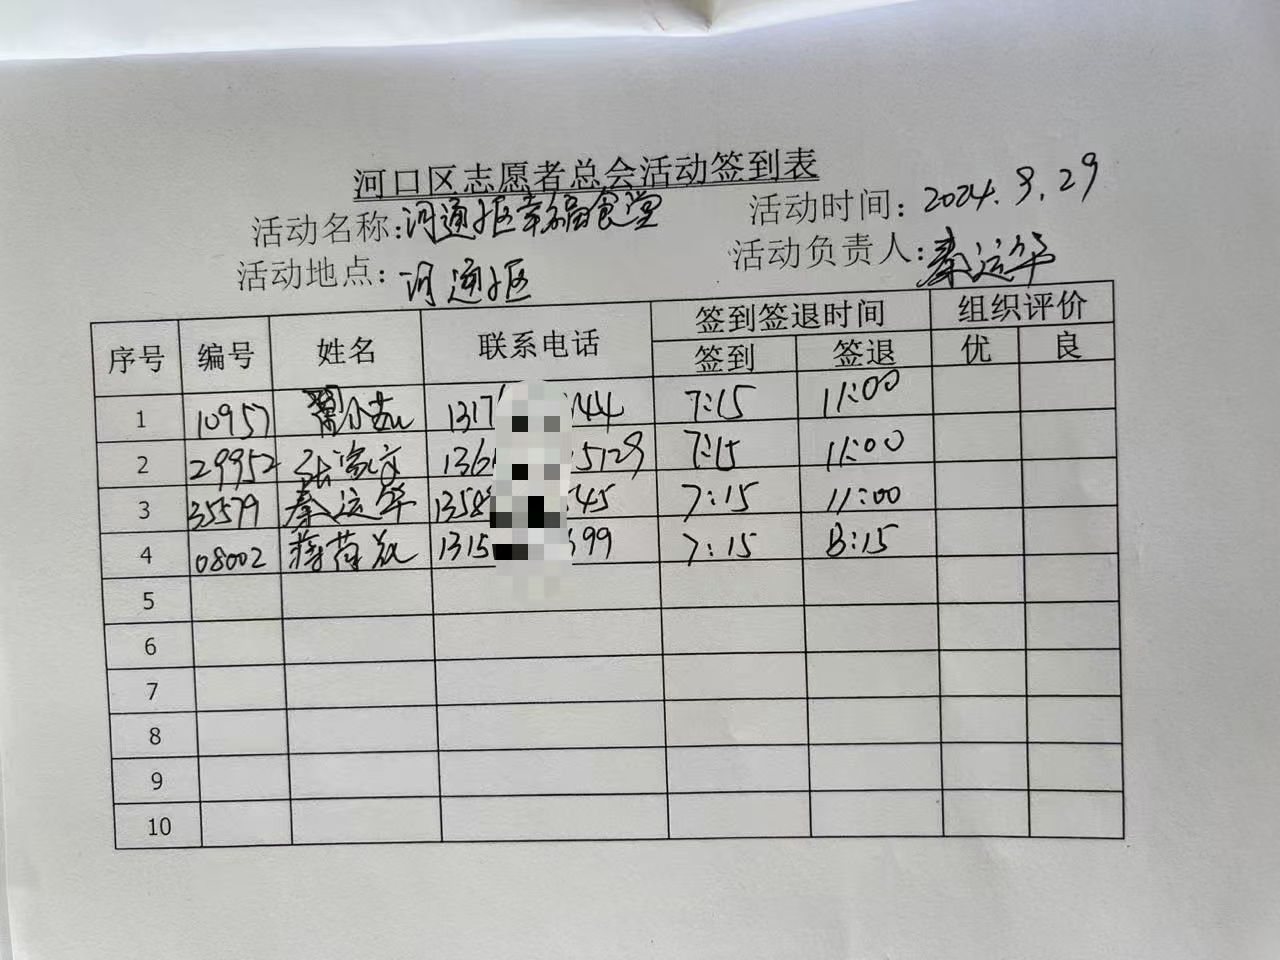 河口区志愿者总会活动签到表
活动名称:河通社区幸福食堂 活动时间:2024.8.29
活动地点:河通社区 活动负责人:秦运华
序号 编号 姓名 联系电话 签到签退时间 组织评价
签到 签退 优 良
1 10957 1317 44 7:15 11:00
2 29952 张 136 5129 7:15 11:00
3 35579 秦运华 1358 45 7:15 11:00
4 08002 蒋 1315 99 7:15 8:15
5
6
7
8
9
10